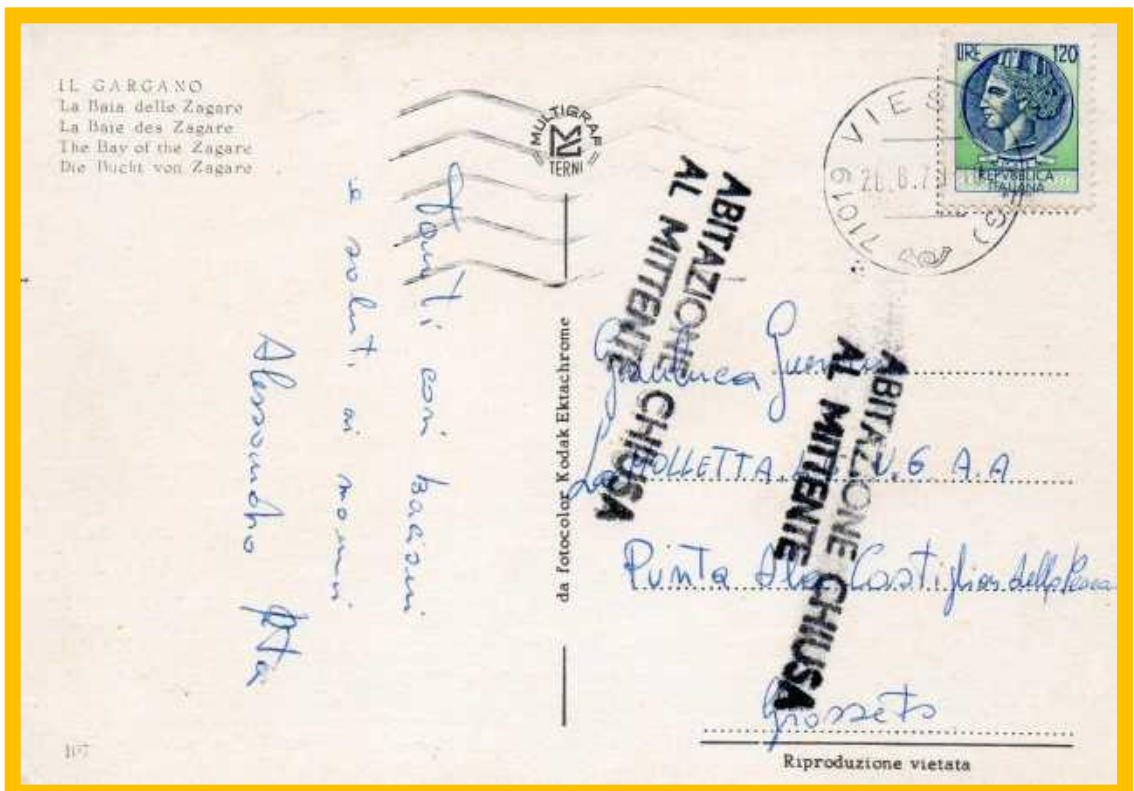 IL GARGANO
La Baia delle Zagare
La Baie des Zagare
The Bay of the Zagare
Die Bucht von Zagare
MULTIGRAF
TERNI
LIRE 120
REPVBBLICA
ITALIANA
71019 VIES
ABITAZIONE CHIUSA
AL MITTENTE
ABITAZIONE CHIUSA
AL MITTENTE
Tanti cari bacioni
e saluti ai nonni
Alessandro
da fotocolor Kodak Ektachrome
Gianluca
N.6 A.A
Punta Ala Castiglion della Pescaia
Grosseto
Riproduzione vietata
107